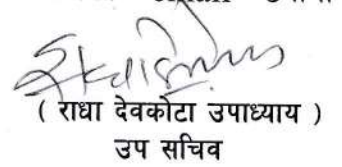 ( राधा देवकोटा उपाध्याय )
उप सचिव